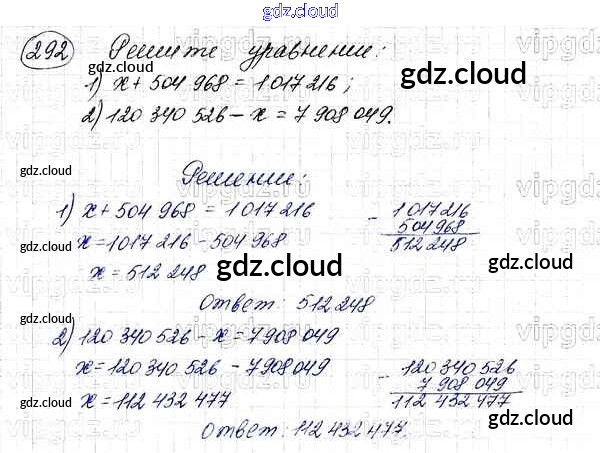 gdz.cloud
292 Решите уравнение:
1) x + 504 968 = 1 017 216;
2) 120 340 526 - x = 7 908 049.
Решение:
1) x + 504 968 = 1 017 216
x = 1 017 216 - 504 968
x = 512 248
- 1 017 216
504 968
512 248
Ответ: 512 248
2) 120 340 526 - x = 7 908 049
x = 120 340 526 - 7 908 049
x = 112 432 477
- 120 340 526
7 908 049
112 432 477
Ответ: 112 432 477.
gdz.cloud
gdz.cloud
gdz.cloud
gdz.cloud
gdz.cloud
gdz.cloud
gdz.cloud
gdz.cloud
gdz.cloud
gdz.cloud
gdz.cloud